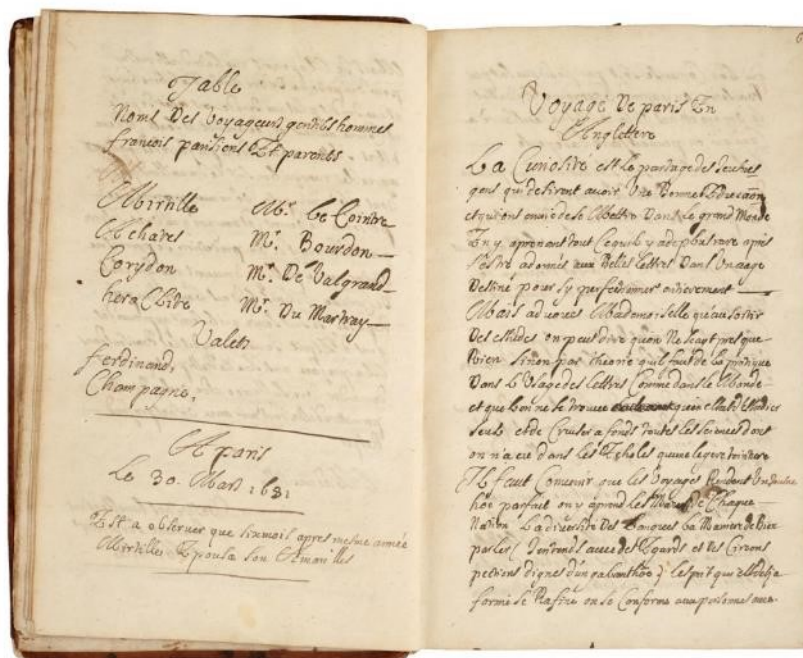 Table
Noms Des Voyageurs gentils hommes
francois parisiens Et parents
Mirtille Mr. Le Cointre
Achates Mr. Bourdon
Corydon Mr. De Valgrand
heraclide Mr. Du Martray
Valets
ferdinand,
Champagne,
A paris
Le 30. Mars 1681
Est a observer que six mois apres mesme année
Mirtille Epousa son Amarilles
6
Voyage De paris En
Angleterre
La Curiosité est le partage des jeunes
gens qui desirent avoir Une Bonne Education
et qui ont envie de se Mettre Dans le grand Monde
En y aprenant tout Ce quil y a de plus rare apres
s'estre adonnés aux Belles Lettres Dans Un aage
Destiné pour s'y perfectionner
Mais advoués Mademoiselle qu'au sortir
Des estudes on peut dire quon Ne scayt presque
Rien sinon par theorie quil faut de La pratique
Dans L'Usage des Lettres Comme dans le Monde
et que lon ne se trouve quen estat d'Estudier
seul et de Creuser a fonds toutes les sciences dont
on n'a eu dans les Escholes qu'une legere teinture
Il faut Convenir que les Voyages Rendent Un jeune
hoe parfait on y aprend les Mœurs de Chaque
Nation La diversité Des Langues La Maniere de Bien
parler ( J'entends avec des Egards et des Circons
pections dignes d'un galanthoe ) l'esprit qui est desja
formé se Rafine on se Conforme aux personnes avec